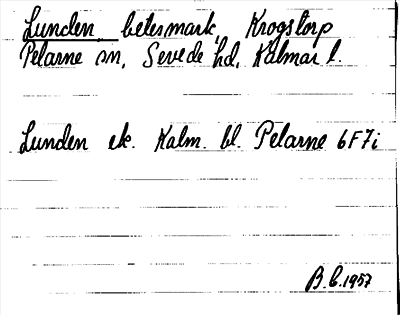 Lunden betesmark, Krogstorp
Pelarne sn, Sevede hd, Kalmar l.
Lunden ek. Kalm. bl. Pelarne 6F7i
B.C. 1957